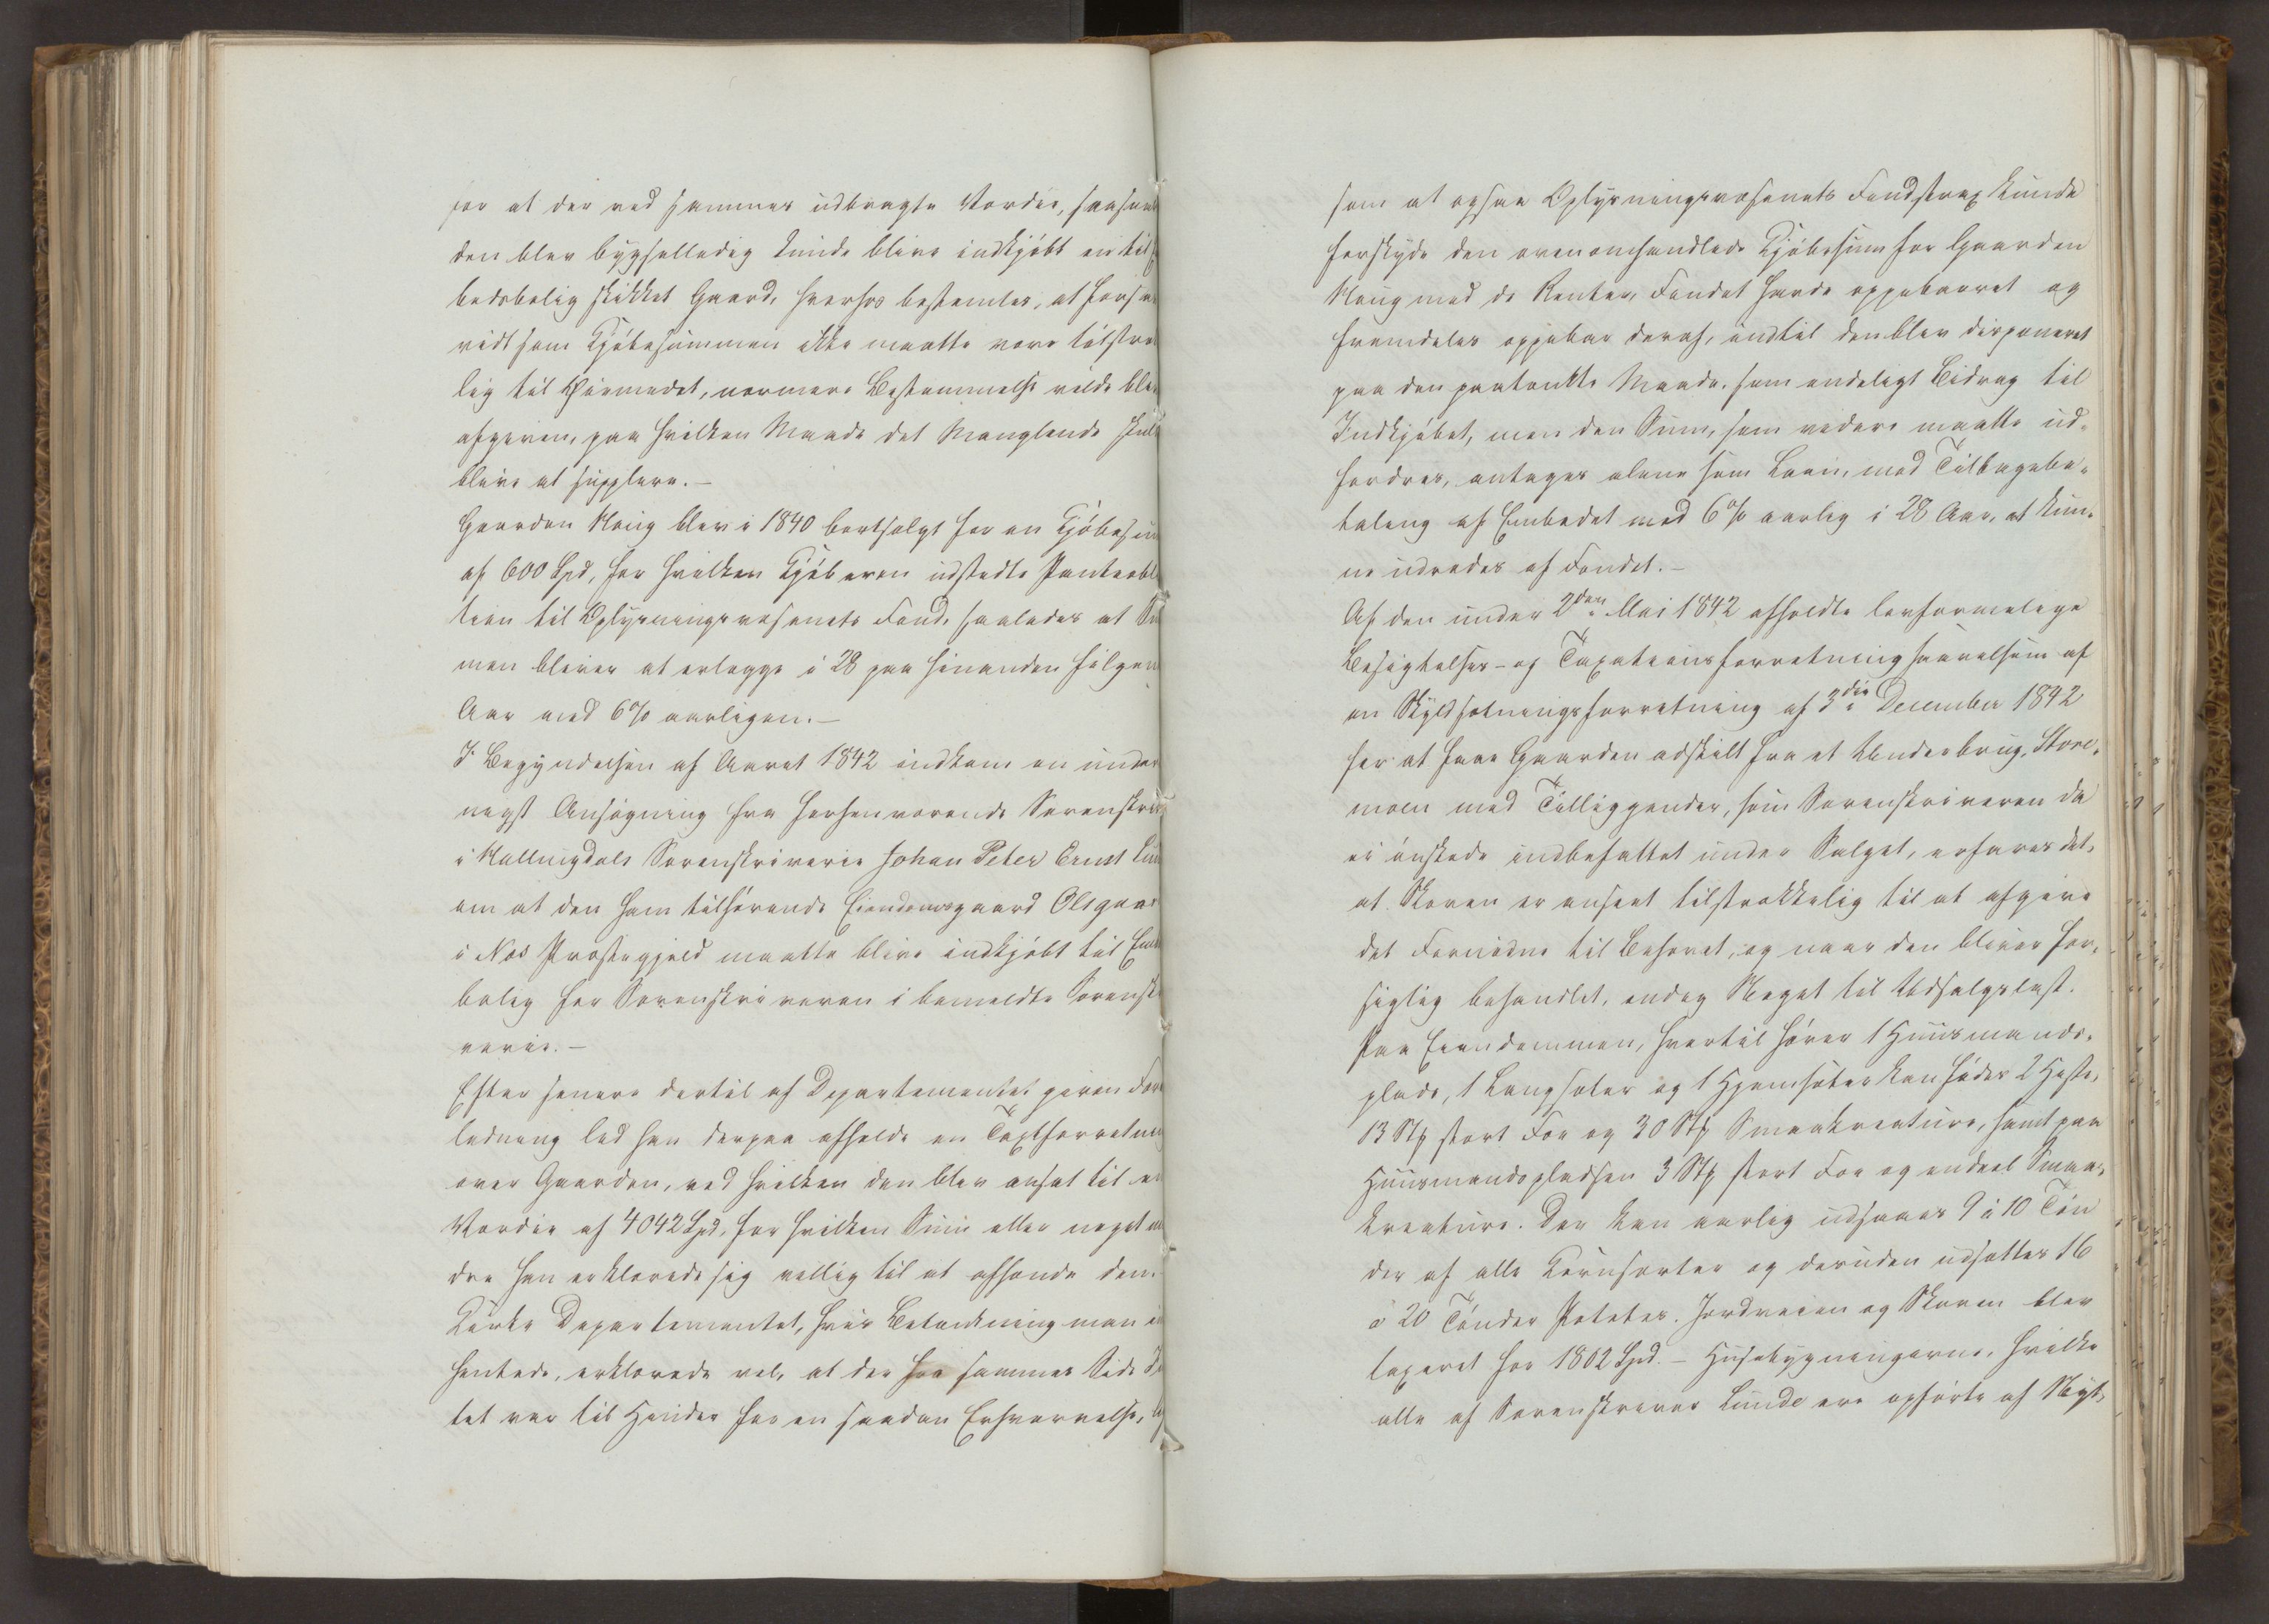 for at der ved sammes udbragte Værdie, saasnart
den blev bygselledig kunde blive indkjøbt en til
bedsbolig skikket Gaard, hvorhos bestemtes, at forsaa
vidt som Kjøbesummen ikke maatte være tilstræk
lig til Øiemedet, nærmere Bestemmelse vilde blive
afgiven, paa hvilken Maade det Manglende skulde
blive at supplere.—
Gaarden Haug blev i 1840 bortsolgt for en Kjøbesum
af 600 Spd, for hvilken Kjøberen udstedte Panteobli
tion til Oplysningsvæsenets Fond, saaledes at Su
men bliver at erlægge i 28 paa hinanden følgen
Aar med 6% aarligen.—
I Begyndelsen af Aaret 1842 indkom en under
nægst Ansøgning fra forhenværende Sorenskriv
i Hallingdals Sorenskriverie Johan Peter Ernst Lun
om at den ham tilhørende Eiendomsgaard Olsgaar
i Næs Præstegjeld maatte blive indkjøbt til Em
bolig for Sorenskriveren i bemeldte Sorensk
verie.—
Efter senere dertil af Departementet given For
ledning lod han derpaa afholde en Taxtforretning
over Gaarden, ved hvilken den blev ansat til en
Værdie af 4042 Spd, for hvilken Sum eller noget min
dre han erklærede sig villig til at afhænde den.
Kirke Departementet, hvis Betænkning man in
hentede, erklærede vel, at der fra sammes Side In
tet var til Hinder for en saadan Erhvervelse, li
som at ogsaa Oplysningsvæsenets Fond strax kunde
forskyde den ovenomhandlede Kjøbesum for Gaarden
Haug med de Renter, Fondet havde oppebaaret og
fremdeles oppebar deraf, indtil den blev disponeret
paa den paatænkte Maade, som endeligt Bidrag til
Indkjøbet, men den Sum, som videre maatte ud-
fordres, antages alene som Laan, med Tilbagebe-
taling af Embedet med 6% aarlig i 28 Aar, at kun-
ne udredes af Fondet.—
Af den under 2den Mai 1842 afholdte lovformelige
Besigtelses- og Taxationsforretning saavelsom af
en Skyldsætningsforretning af 3die December 1842
for at faae Gaarden adskilt fra et Underbrug, Store-
moen med Tilliggender, som Sorenskriveren da
ei ønskede indbefattet under Salget, erfares det,
at Skoven er anseet tilstrækkelig til at afgive
det Fornødne til Behovet, og naar den bliver for-
sigtig behandlet, endog Noget til Udsalgslast.
Paa Eiendommen, hvortil hører 1 Huusmands-
plads, 1 Langsæter og 1 Hjemsæter kan fødes 2 Heste,
13 Stk stort Fæ og 30 Stk Smaakreature, samt paa
Huusmandspladsen 3 Stk stort Fæ og endeel Smaa-
kreature. Der kan aarlig udsaaes 9 á 10 Tøn
der af alle Kornsorter og desuden udsættes 16
á 20 Tønder Poteter. Jordveien og Skoven blev
taxeret for 1802 Spd.— Husebygningerne, hvilke
alle af Sorenskriver Lunde ere opførte af Nyt,